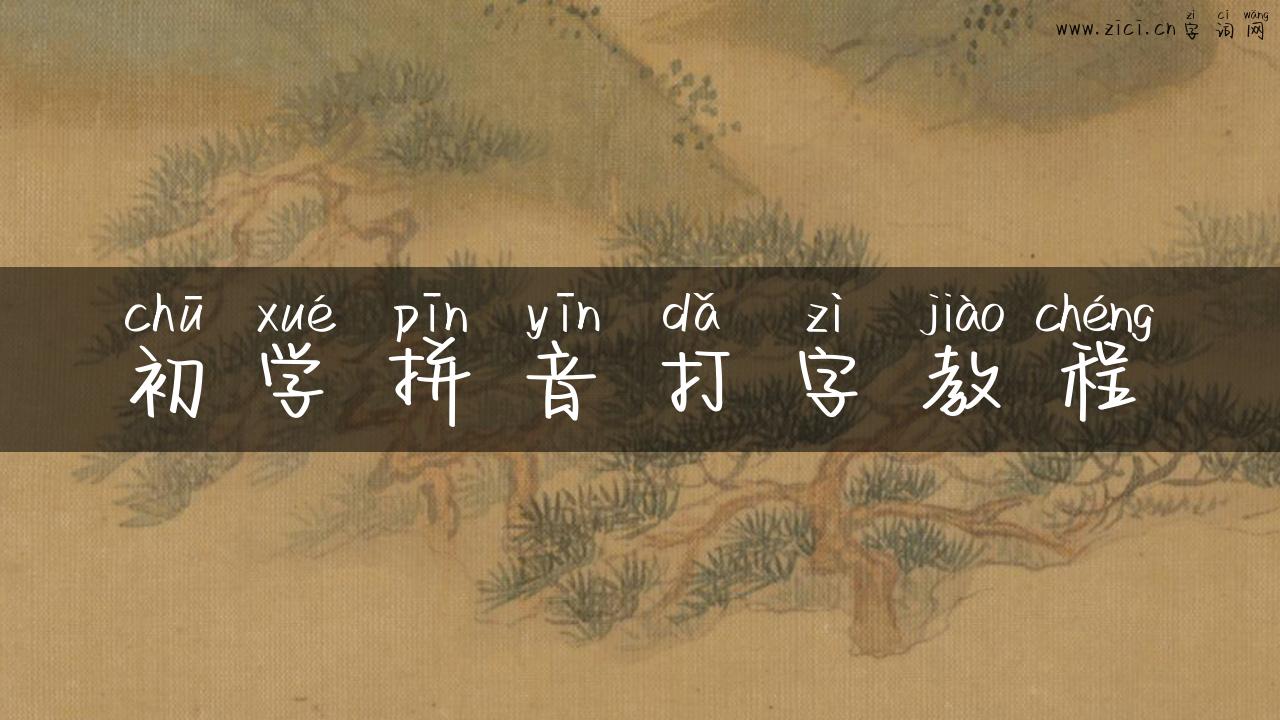 zì cí wǎng
www.zici.cn 字词网
chū xué pīn yīn dǎ zì jiào chéng
初学拼音打字教程